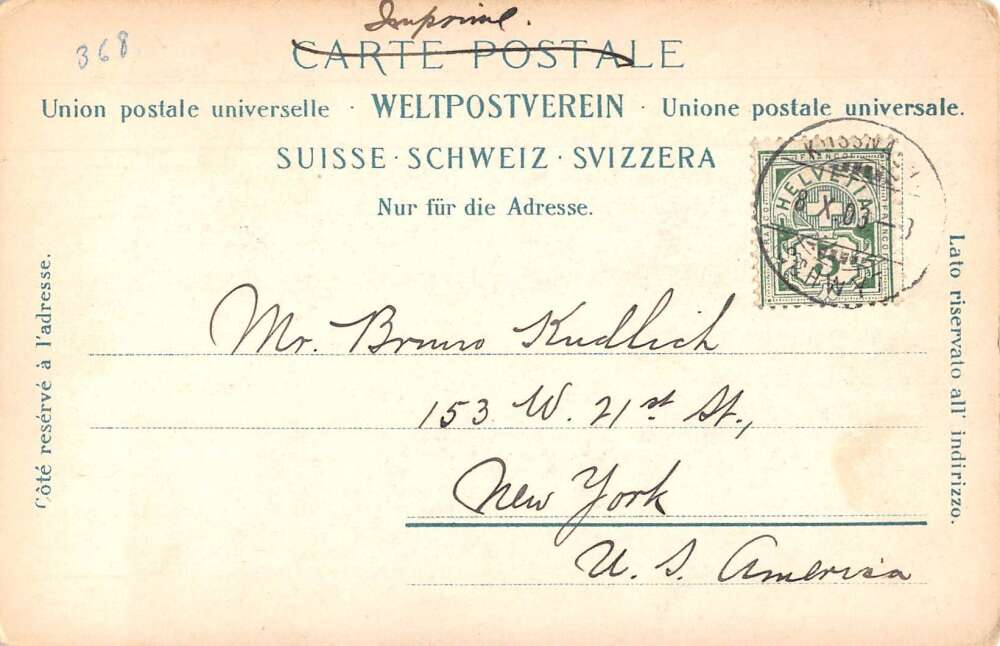 Imprimé.
368
CARTE POSTALE
Union postale universelle · WELTPOSTVEREIN · Unione postale universale.
SUISSE · SCHWEIZ · SVIZZERA
Nur für die Adresse.
FRANCO
HELVETIA
FRANCO
5
8 X 03
Côté resérvé à l'adresse.
Lato riservato all' indirizzo.
Mr. Bruno Kudlich
153 W. 71st St.,
New York
U. S. America